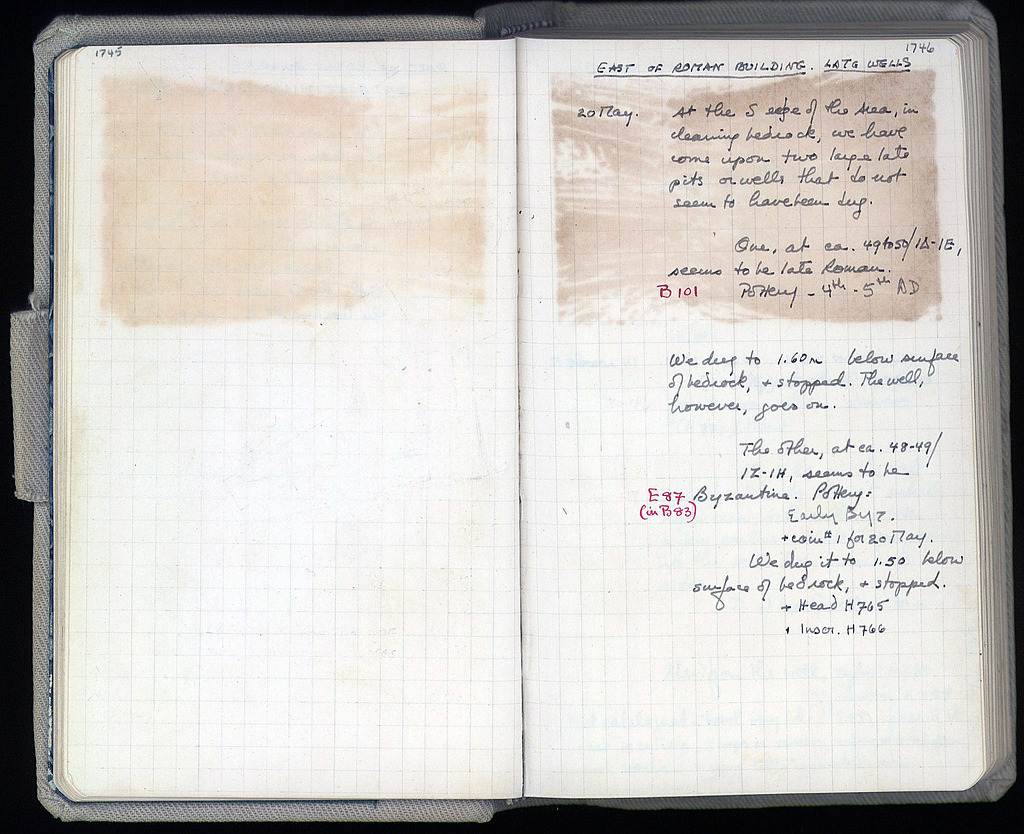 1745
1746
EAST OF ROMAN BUILDING. LATE WELLS
20 May. At the S edge of the area, in
cleaning bedrock, we have
come upon two large late
pits or wells that do not
seem to have been dug.
One, at ca. 49to50/1Δ-1E,
seems to be late Roman.
B 101 Pottery - 4th - 5th AD
We dug to 1.60m below surface
of bedrock, + stopped. The well,
however, goes on.
The other, at ca. 48-49/
1Z-1H, seems to be
E87 Byzantine. Pottery:
(in B83) Early Byz.
+ coin #1 for 20 May.
We dug it to 1.50 below
surface of bedrock, + stopped.
+ Head H765
+ Inscr. H766